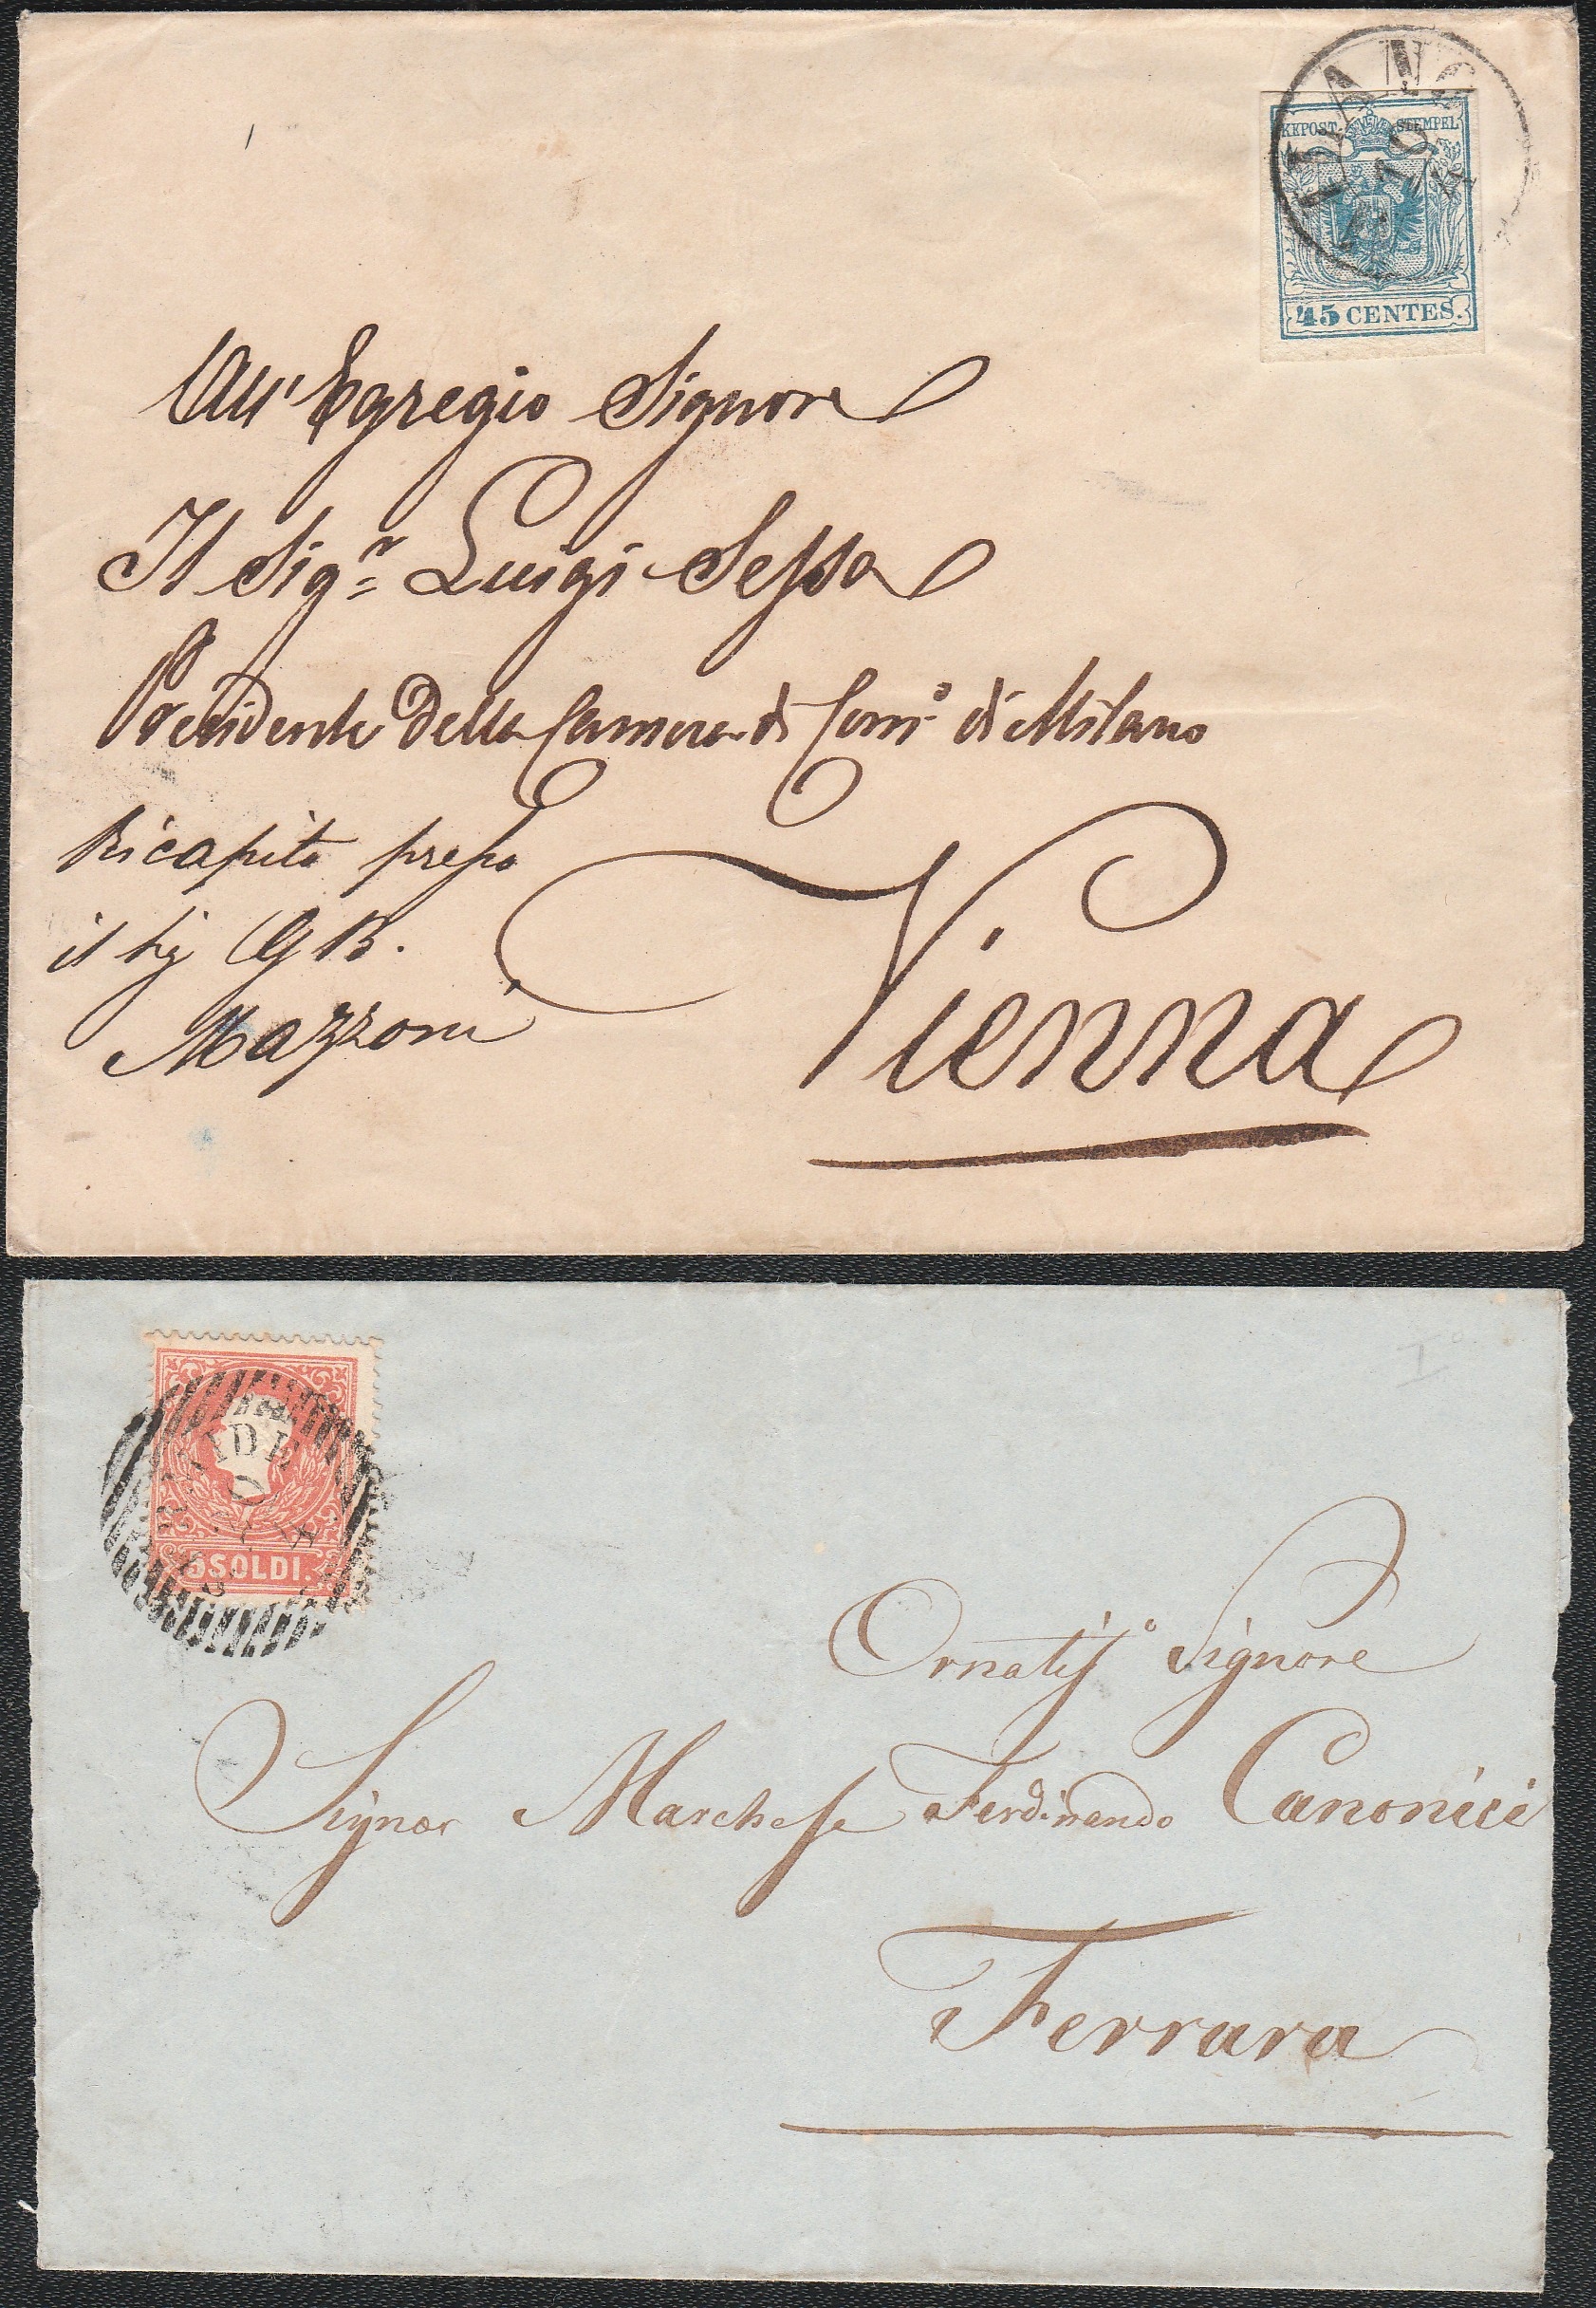 MILANO
KKPOST STEMPEL
45 CENTES.
All' Egregio Signore
Il Sigr Luigi Sessa
Presidente della Camera di Como di Milano
Ricapito presso
il Sig G B.
Mazzoni
Vienna
5 SOLDI.
Ornatiso Signore
Signor Marchese Ferdinando Canonici
Ferrara